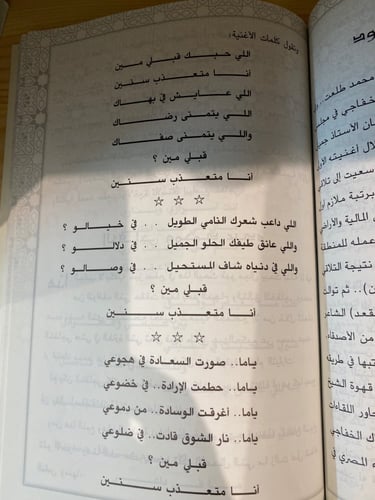 وتقول كلمات الأغنية:
اللي حبك قبلي مين
أنا متعذب سنين
اللي عايش في بهاك
واللي يتمنى رضاك
واللي يتمنى صفاك
قبلي مين ؟
أنا متعذب سنين
☆ ☆ ☆
اللي داعب شعرك النامي الطويل . . في خيالو ؟
واللي عانق طيفك الحلو الجميل . . في دلالو ؟
واللي في دنياه شاف المستحيل . . في وصالو ؟
قبلي مين ؟
أنا متعذب سنين
☆ ☆ ☆
ياما.. صورت السعادة في هجوعي
ياما.. حطمت الإرادة.. في خضوعي
ياما.. أغرقت الوسادة.. من دموعي
ياما.. نار الشوق قادت.. في ضلوعي
قبلي مين ؟
أنا متعذب سنين
محمد طلعت
خفاجي في مجلس
الأستاذ جميل
أغنيته
سعيت إلى تلافي
برتبة ملازم أول
المالية والأراضي
عمده للمنطقة
نتيجة التلاقي
ثم توالت
الشاعر
من الأصدقاء
في طريقه
قهوة الشيخ
اللقاءات
الخفاجي
المصري في